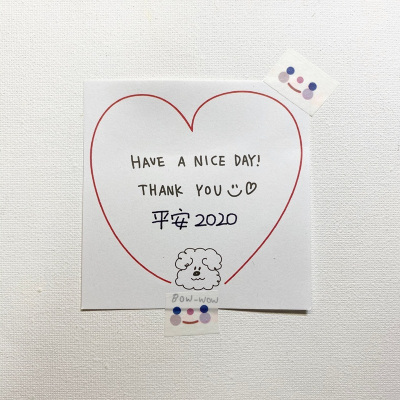 HAVE A NICE DAY!
THANK YOU
平安 2020
BOW-WOW